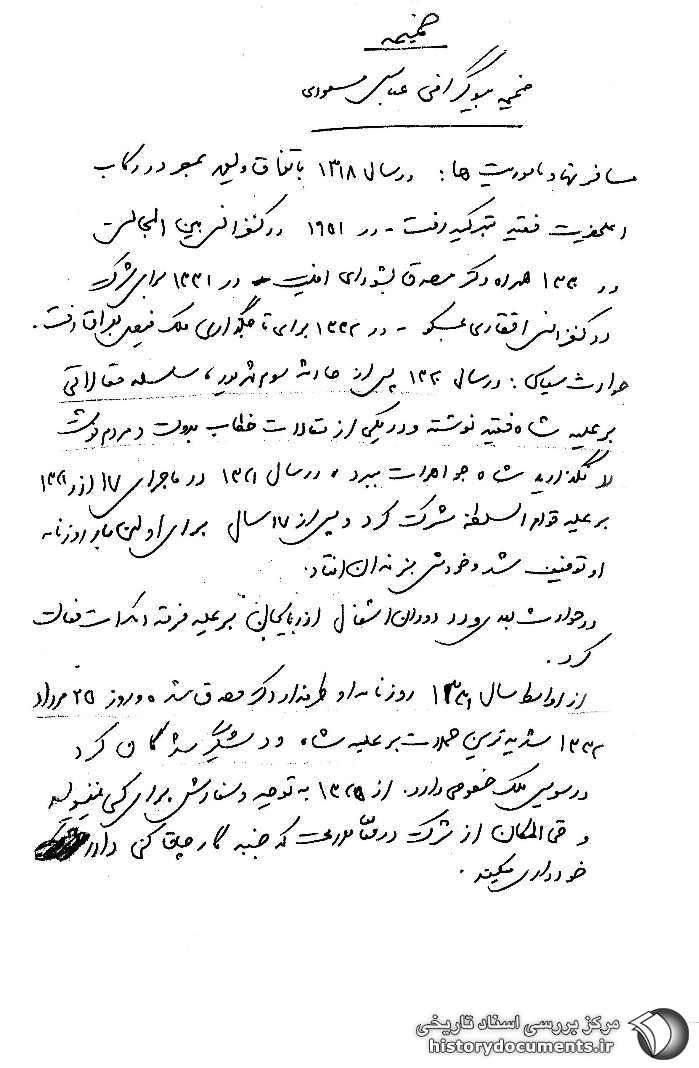 ضمیمه
ضمیمه بیوگرافی عباس مسعودی
مسافرتها و ماموریت ها: در سال ۱۳۱۸ باتفاق ولیعهد در رکاب
اعلیحضرت فقید بترکیه رفت - در ۱۹۵۱ در کنفرانس بین المجالس
در ۱۳۳۰ همراه دکتر مصدق بشورای امنیت - در ۱۳۳۱ برای شرکت
در کنفرانس اقتصادی مسکو - در ۱۳۳۲ برای تاجگذاری ملک فیصل بعراق رفت.
حوادث سیاسی: در سال ۱۳۲۰ پس از حادثه سوم شهریور، سلسله مقالاتی
بر علیه شاه فقید نوشته و در یکی از مقالات خطاب بدولت و مردم نوشت
نگذارید شاه جواهرات ببرد، در سال ۱۳۲۱ در ماجرای ۱۷ آذر ۱۳۲۱
بر علیه قوام السلطنه شرکت کرد و پس از ۱۷ سال برای اولین بار روزنامه
او توقیف شد و خودش بزندان افتاد.
در حوادث بعدی و در دوران اشغال آذربایجان بر علیه فرقه دمکرات فعالیت
کرد.
از اواسط سال ۱۳۳۱ روزنامه او طرفدار دکتر مصدق شده و روز ۲۵ مرداد
۱۳۳۲ شدیدترین حملات بر علیه شاه و دستگیر شدگان کرد
در سویس ملک خصوصی دارد. از ۱۳۲۵ به توصیه و سفارش برای کسی نمینویسد
و حتی المکان از شرکت در که جنبه کار چاق کنی دارد
خودداری میکند.
مرکز بررسی اسناد تاریخی
historydocuments.ir